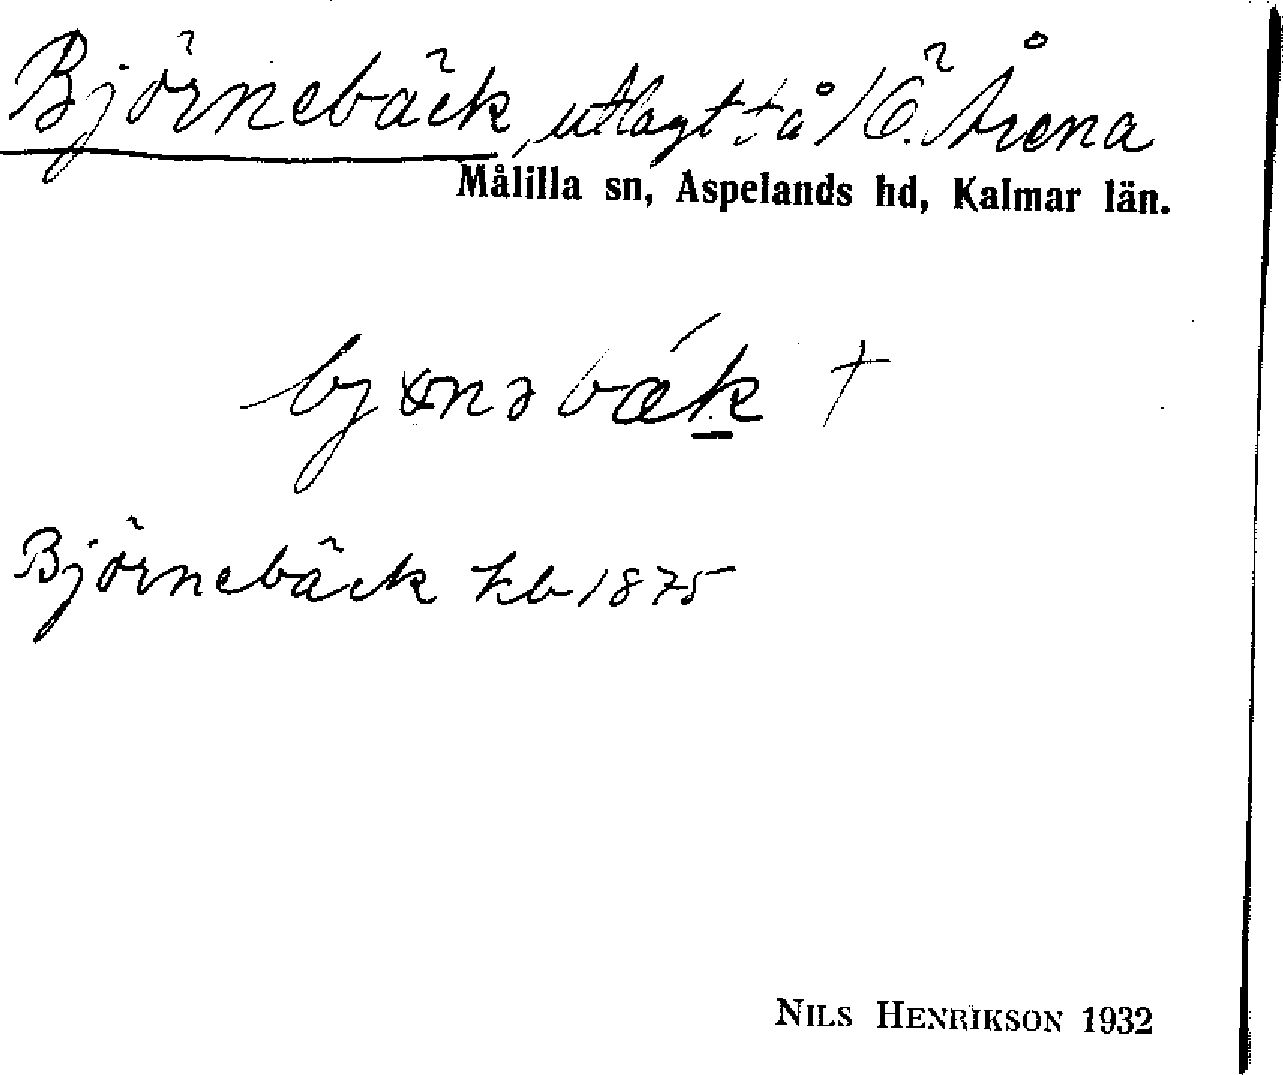 Björnebäck, utlagt tå /Ö. Årena
Målilla sn, Aspelands hd, Kalmar län.
Björnebäck kb 1875
NILS HENRIKSON 1932